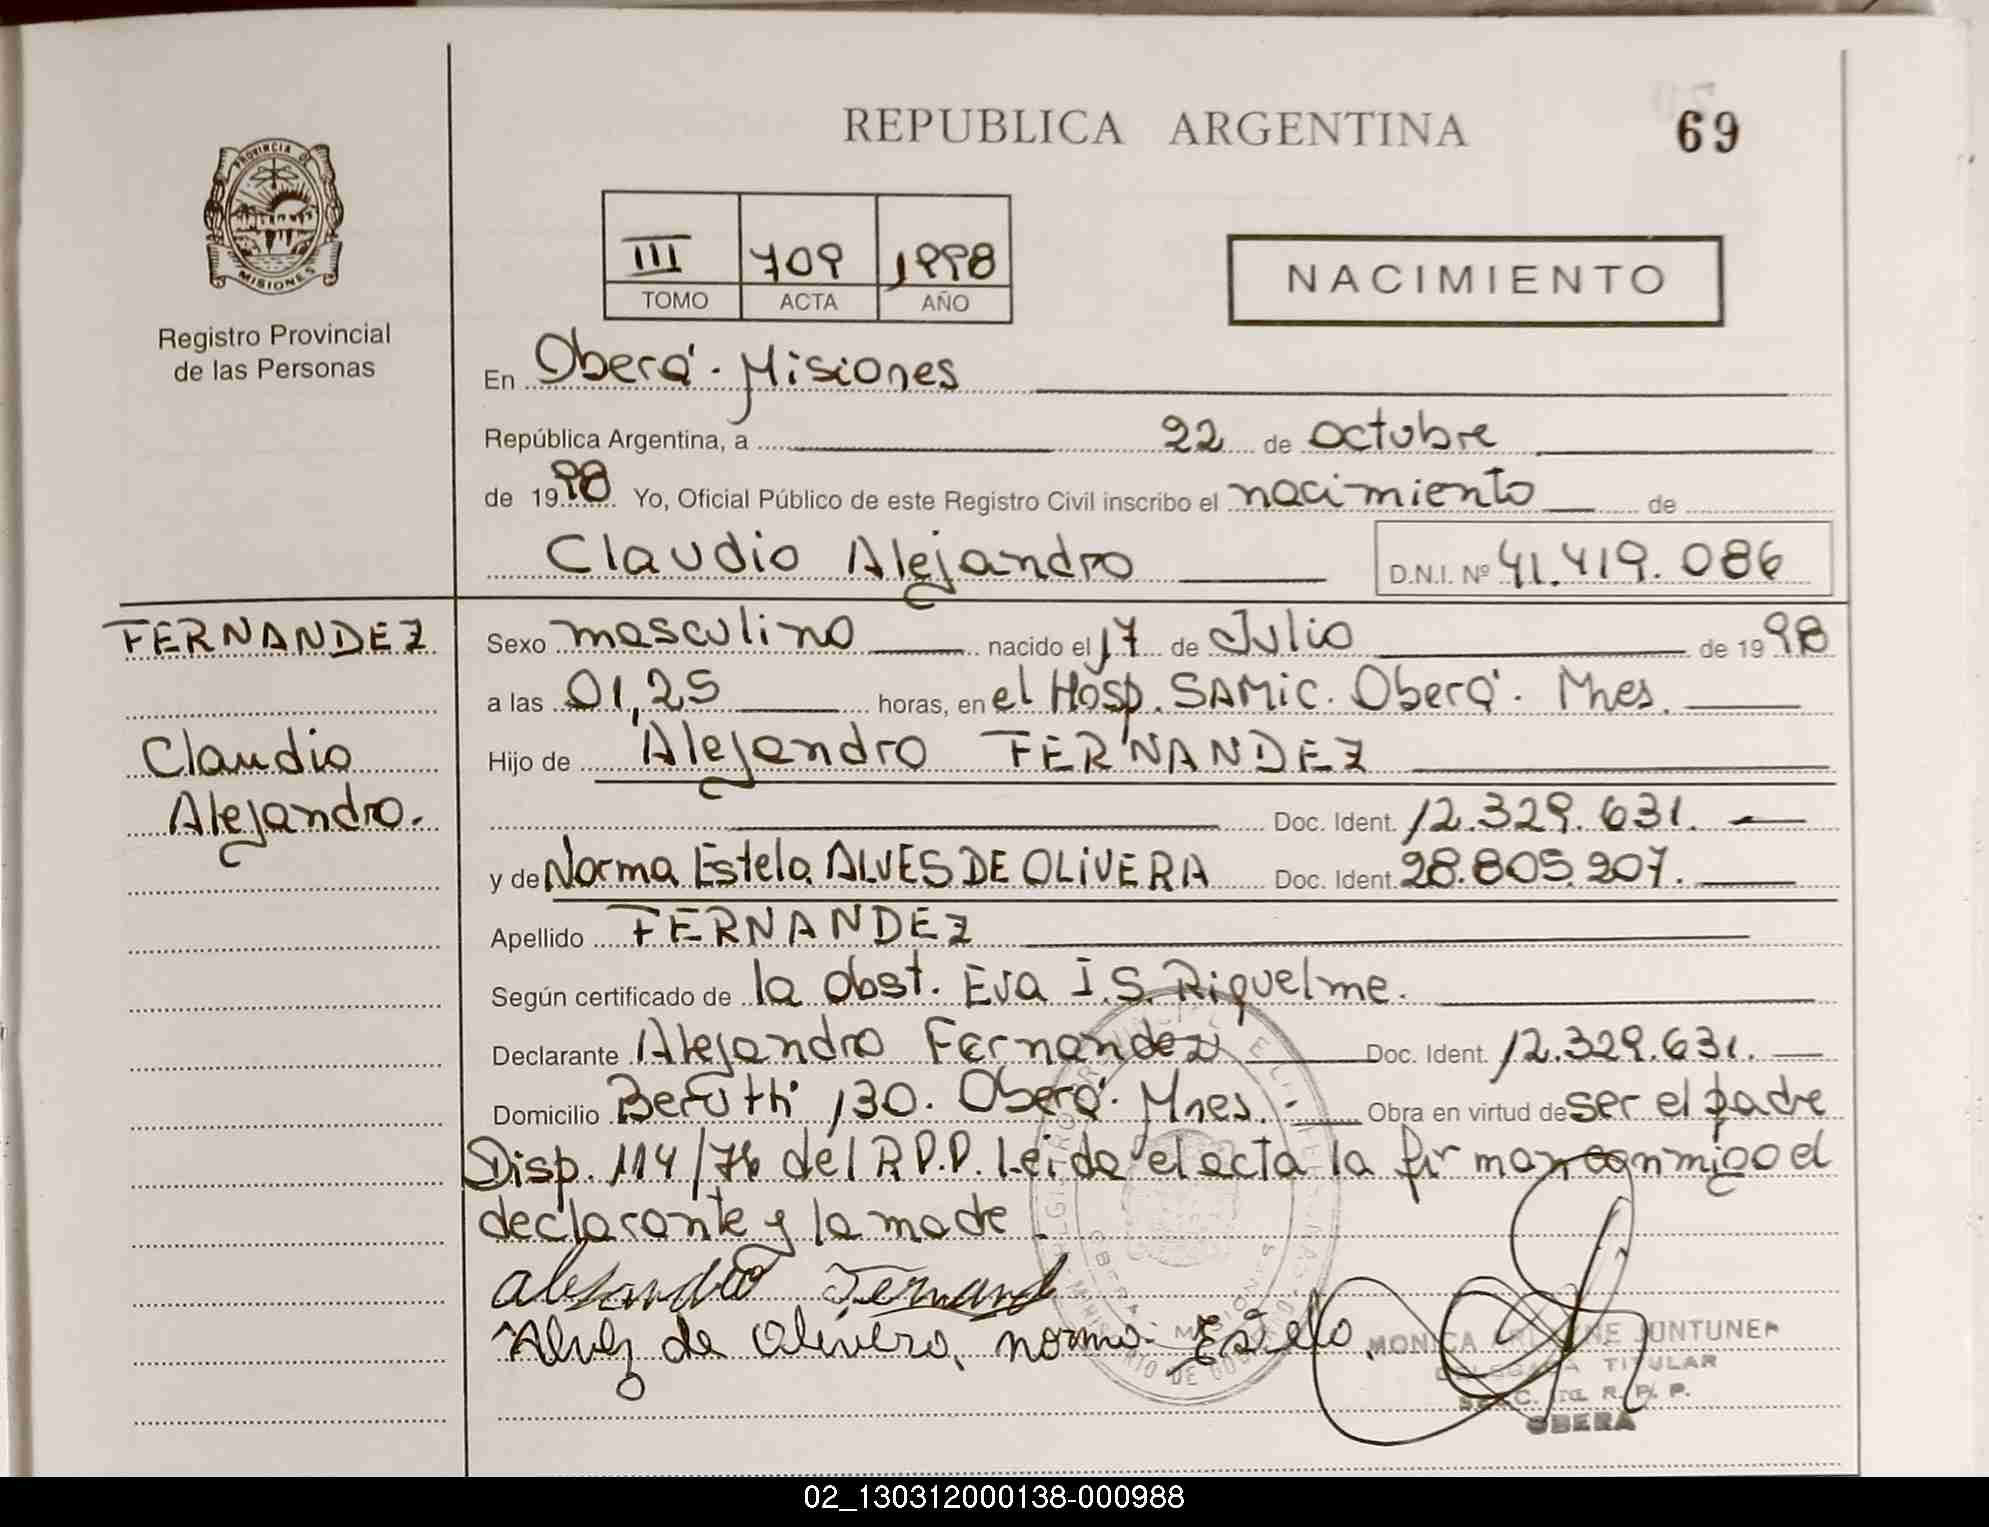 REPUBLICA ARGENTINA
69
PROVINCIA DE
MISIONES
Registro Provincial
de las Personas
III 709 1998
TOMO ACTA AÑO
NACIMIENTO
En Oberá - Misiones
República Argentina, a 22 de octubre
de 1998 Yo, Oficial Público de este Registro Civil inscribo el nacimiento de
Claudio Alejandro D.N.I. Nº 41.419.086
FERNANDEZ
Claudio
Alejandro.
Sexo masculino nacido el 17 de Julio de 1998
a las 01,25 horas, en el Hosp. SAMIC. Oberá. Mnes.
Hijo de Alejandro FERNANDEZ
Doc. Ident. 12.329.631.
y de Norma Estela ALVES DE OLIVERA Doc. Ident. 28.805.207.
Apellido FERNANDEZ
Según certificado de la obst. Eva I.S. Riquelme.
Declarante Alejandro Fernandez Doc. Ident. 12.329.631.
Domicilio Berutti 130. Oberá. Mnes. Obra en virtud de ser el padre
Disp. 114/76 del R.P.P. Leida el acta la firman conmigo el
declarante y la madre
Alejandro Fernand
Alvez de Olivera, norma Estela
MONICA JUNTUNEN
DELEGADA TITULAR
R. P. P.
OBERA
02_130312000138-000988